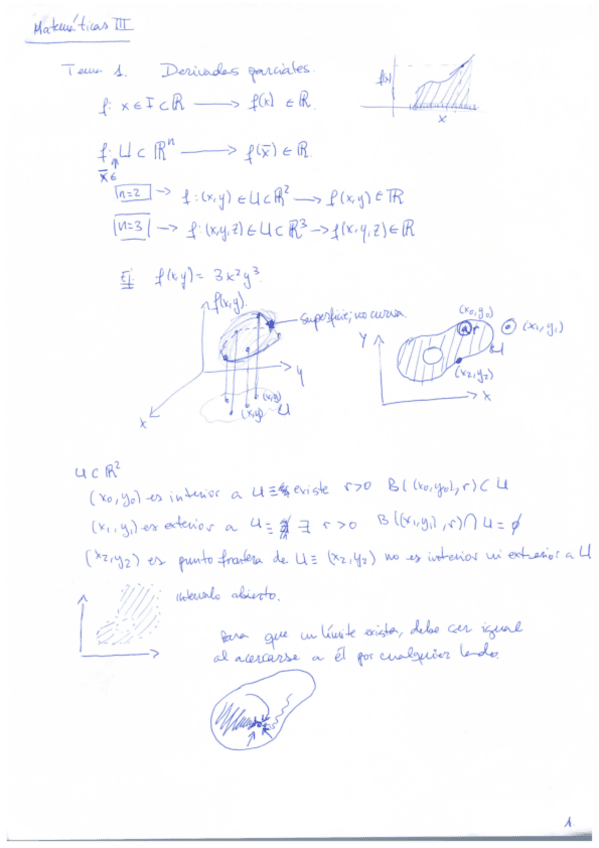 Matemáticas III
Tema 1. Derivadas parciales.
f: x ∈ I ⊂ ℝ ⟶ f(x) ∈ ℝ.
f(x)
x
f: U ⊂ ℝⁿ ⟶ f(x̄) ∈ ℝ.
x̄ ∈
n=2 → f: (x,y) ∈ U ⊂ ℝ² ⟶ f(x,y) ∈ ℝ
n=3 → f: (x,y,z) ∈ U ⊂ ℝ³ → f(x,y,z) ∈ ℝ
Ej: f(x,y) = 3x²y³.
f(x,y).
superficie, no curva
y
x
(x,y)
(x,y)
U
Y
(x₀,y₀)
r
(x₁,y₁)
U
(x₂,y₂)
X
U ⊂ ℝ²
(x₀,y₀) es interior a U ≡ existe r>0 B((x₀,y₀),r) ⊂ U
(x₁,y₁) es exterior a U ≡ ∃ r>0 B((x₁,y₁),r) ∩ U = ∅
(x₂,y₂) es punto frontera de U ≡ (x₂,y₂) no es interior ni exterior a U
intervalo abierto.
Para que un límite exista, debe ser igual
al acercarse a él por cualquier lado.
1